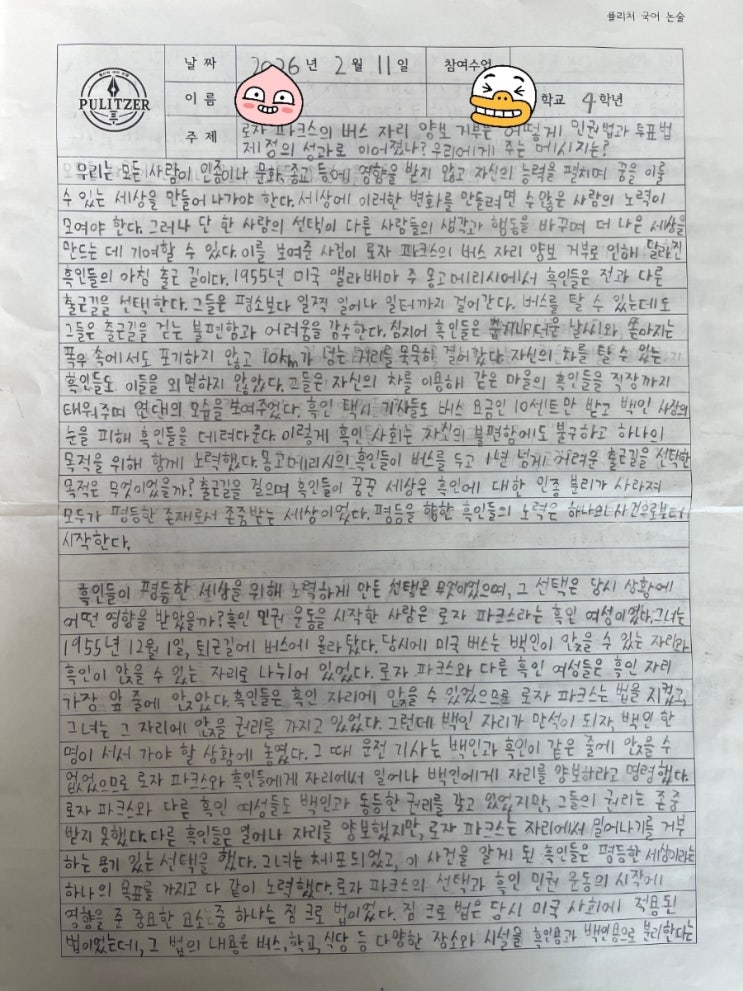 플리처 국어 논술
날짜 2026년 2월 11일 참여수업
이름 학교 4학년
PULITZER
주제 로자 파크스의 버스 자리 양보 거부는 어떻게 민권법과 투표법
제정의 성과로 이어졌나? 우리에게 주는 메시지는?
우리는 모든 사람이 인종이나 문화, 종교 등에 영향을 받지 않고 자신의 능력을 펼치며 꿈을 이룰
수 있는 세상을 만들어 나가야 한다. 세상에 이러한 변화를 만들려면 수 많은 사람의 노력이
모여야 한다. 그러나 단 한 사람의 선택이 다른 사람들의 생각과 행동을 바꾸며 더 나은 세상을
만드는 데 기여할 수 있다. 이를 보여준 사건이 로자 파크스의 버스 자리 양보 거부로 인해 달라진
흑인들의 아침 출근 길이다. 1955년 미국 앨라배마 주 몽고메리시에서 흑인들은 전과 다른
출근길을 선택한다. 그들은 평소보다 일찍 일어나 일터까지 걸어간다. 버스를 탈 수 있는데도
그들은 출근길을 걷는 불편함과 어려움을 감수한다. 심지어 흑인들은 날씨와, 쏟아지는
폭우 속에서도 포기하지 않고 10km가 넘는 거리를 묵묵히 걸어갔다. 자신의 차를 탈 수 있는
흑인들도 이들을 외면하지 않았다. 그들은 자신의 차를 이용해 같은 마을의 흑인들을 직장까지
태워주며 연대의 모습을 보여주었다. 흑인 택시 기사들도 버스 요금인 10센트만 받고 백인 사장의
눈을 피해 흑인들을 데려다준다. 이렇게 흑인 사회는 자신의 불편함에도 불구하고 하나의
목적을 위해 함께 노력했다. 몽고메리시의 흑인들이 버스를 두고 1년 넘게 어려운 출근길을 선택한
목적은 무엇이었을까? 출근길을 걸으며 흑인들이 꿈꾼 세상은 흑인에 대한 인종 분리가 사라져
모두가 평등한 존재로서 존중받는 세상이었다. 평등을 향한 흑인들의 노력은 하나의 사건으로부터
시작한다.
흑인들이 평등한 세상을 위해 노력하게 만든 선택은 무엇이었으며, 그 선택은 당시 상황에
어떤 영향을 받았을까? 흑인 민권 운동을 시작한 사람은 로자 파크스라는 흑인 여성이었다. 그녀는
1955년 12월 1일, 퇴근길에 버스에 올라 탔다. 당시에 미국 버스는 백인이 앉을 수 있는 자리와
흑인이 앉을 수 있는 자리로 나뉘어 있었다. 로자 파크스와 다른 흑인 여성들은 흑인 자리
가장 앞 줄에 앉았다. 흑인들은 흑인 자리에 앉을 수 있었으므로 로자 파크스는 법을 지켰고,
그녀는 그 자리에 앉을 권리를 가지고 있었다. 그런데 백인 자리가 만석이 되자, 백인 한
명이 서서 가야 할 상황에 놓였다. 그 때 운전 기사는 백인과 흑인이 같은 줄에 앉을 수
없었으므로 로자 파크스와 흑인들에게 자리에서 일어나 백인에게 자리를 양보하라고 명령했다.
로자 파크스와 다른 흑인 여성들도 백인과 동등한 권리를 갖고 있었지만, 그들의 권리는 존중
받지 못했다. 다른 흑인들은 일어나 자리를 양보했지만, 로자 파크스는 자리에서 일어나기를 거부
하는 용기 있는 선택을 했다. 그녀는 체포되었고, 이 사건을 알게 된 흑인들은 평등한 세상이라는
하나의 목표를 가지고 다 같이 노력했다. 로자 파크스의 선택과 흑인 민권 운동의 시작에
영향을 준 중요한 요소 중 하나는 짐 크로 법이었다. 짐 크로 법은 당시 미국 사회에 적용된
법이었는데, 그 법의 내용은 버스, 학교, 식당 등 다양한 장소와 시설을 흑인용과 백인용으로 분리한다는